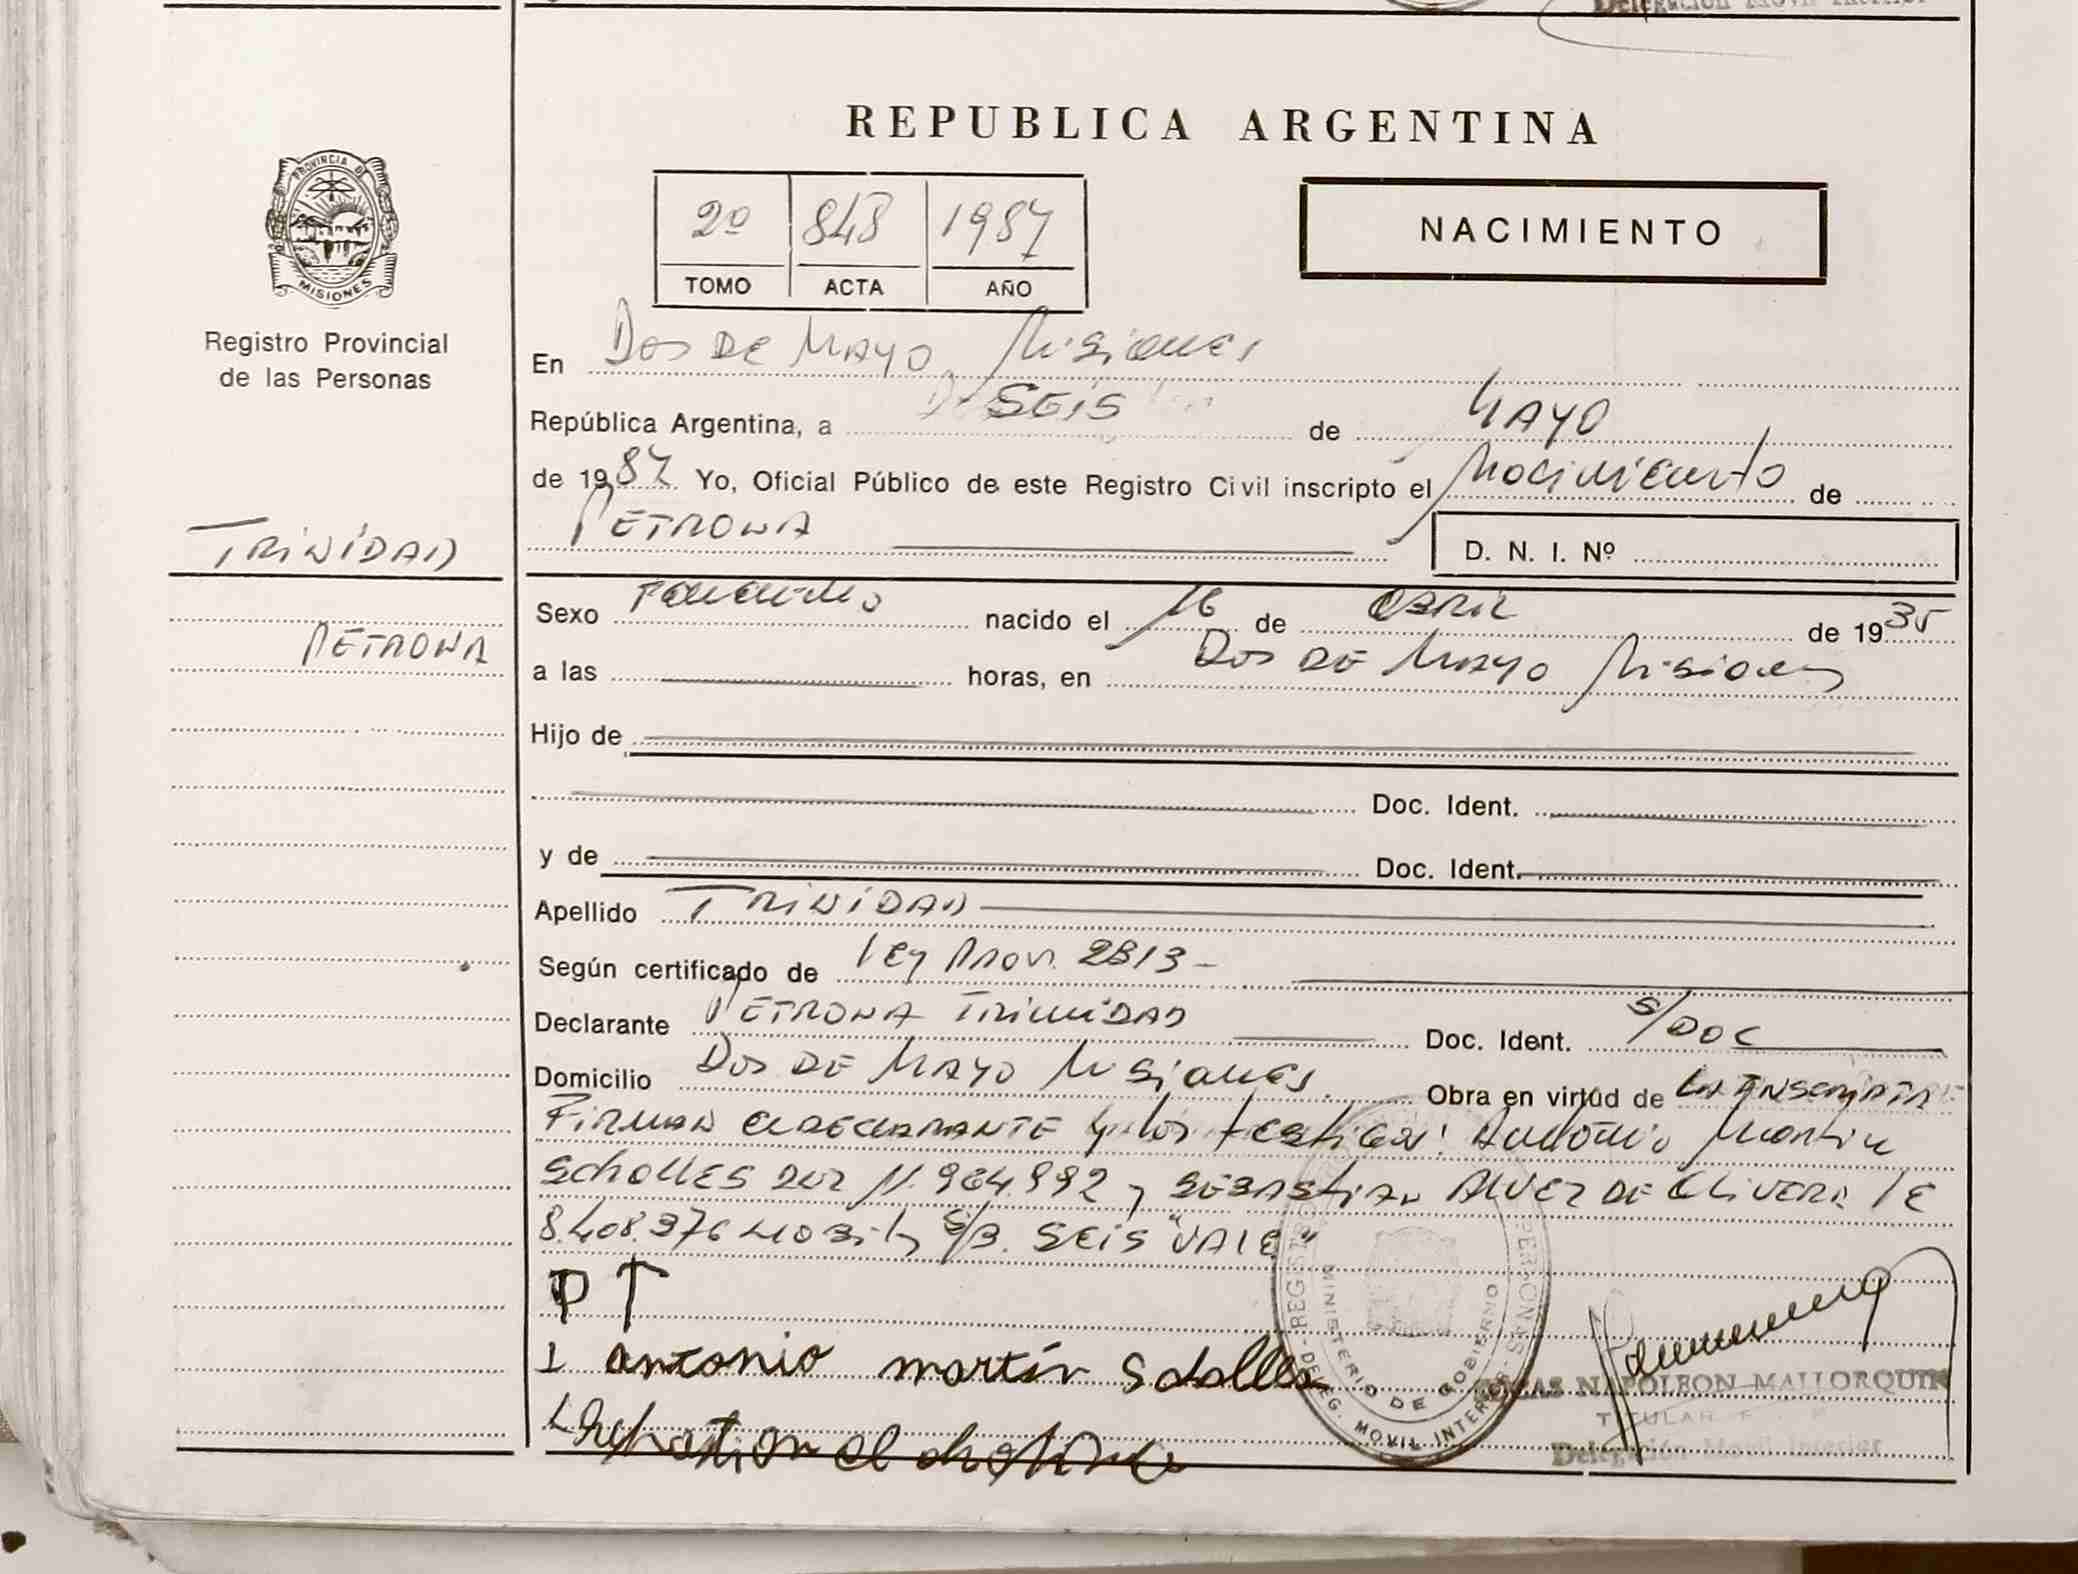 REPUBLICA ARGENTINA
PROVINCIA DE
MISIONES
2º 848 1987
TOMO ACTA AÑO
NACIMIENTO
Registro Provincial
de las Personas
En Dos DE MAYO Misiones
República Argentina, a SEIS de MAYO
de 1987 Yo, Oficial Público de este Registro Civil inscripto el Nacimiento de
PETRONA
D. N. I. Nº
TRINIDAD
PETRONA
Sexo Femenino nacido el 16 de ABRIL de 1935
a las horas, en Dos DE MAYO Misiones
Hijo de
Doc. Ident.
y de Doc. Ident.
Apellido TRINIDAD
Según certificado de Ley Prov. 2813-
Declarante PETRONA TRINIDAD Doc. Ident. S/DOC
Domicilio Dos DE MAYO Misiones. Obra en virtud de
FIRMAN EL DECLARANTE y los testigos: Antonio Martin
SchollES N. 964.992 y SEBASTIAN ALVEZ DE OLIVERA LE
8.408.376 S/B. SEIS "VALE"
P T
1 antonio martin Scholles
REGISTRO PERSONAS
MINISTERIO DE GOBIERNO
DELEG. MOVIL INTERIOR
NAPOLEON MALLORQUIN
TITULAR
Delegación Movil Interior